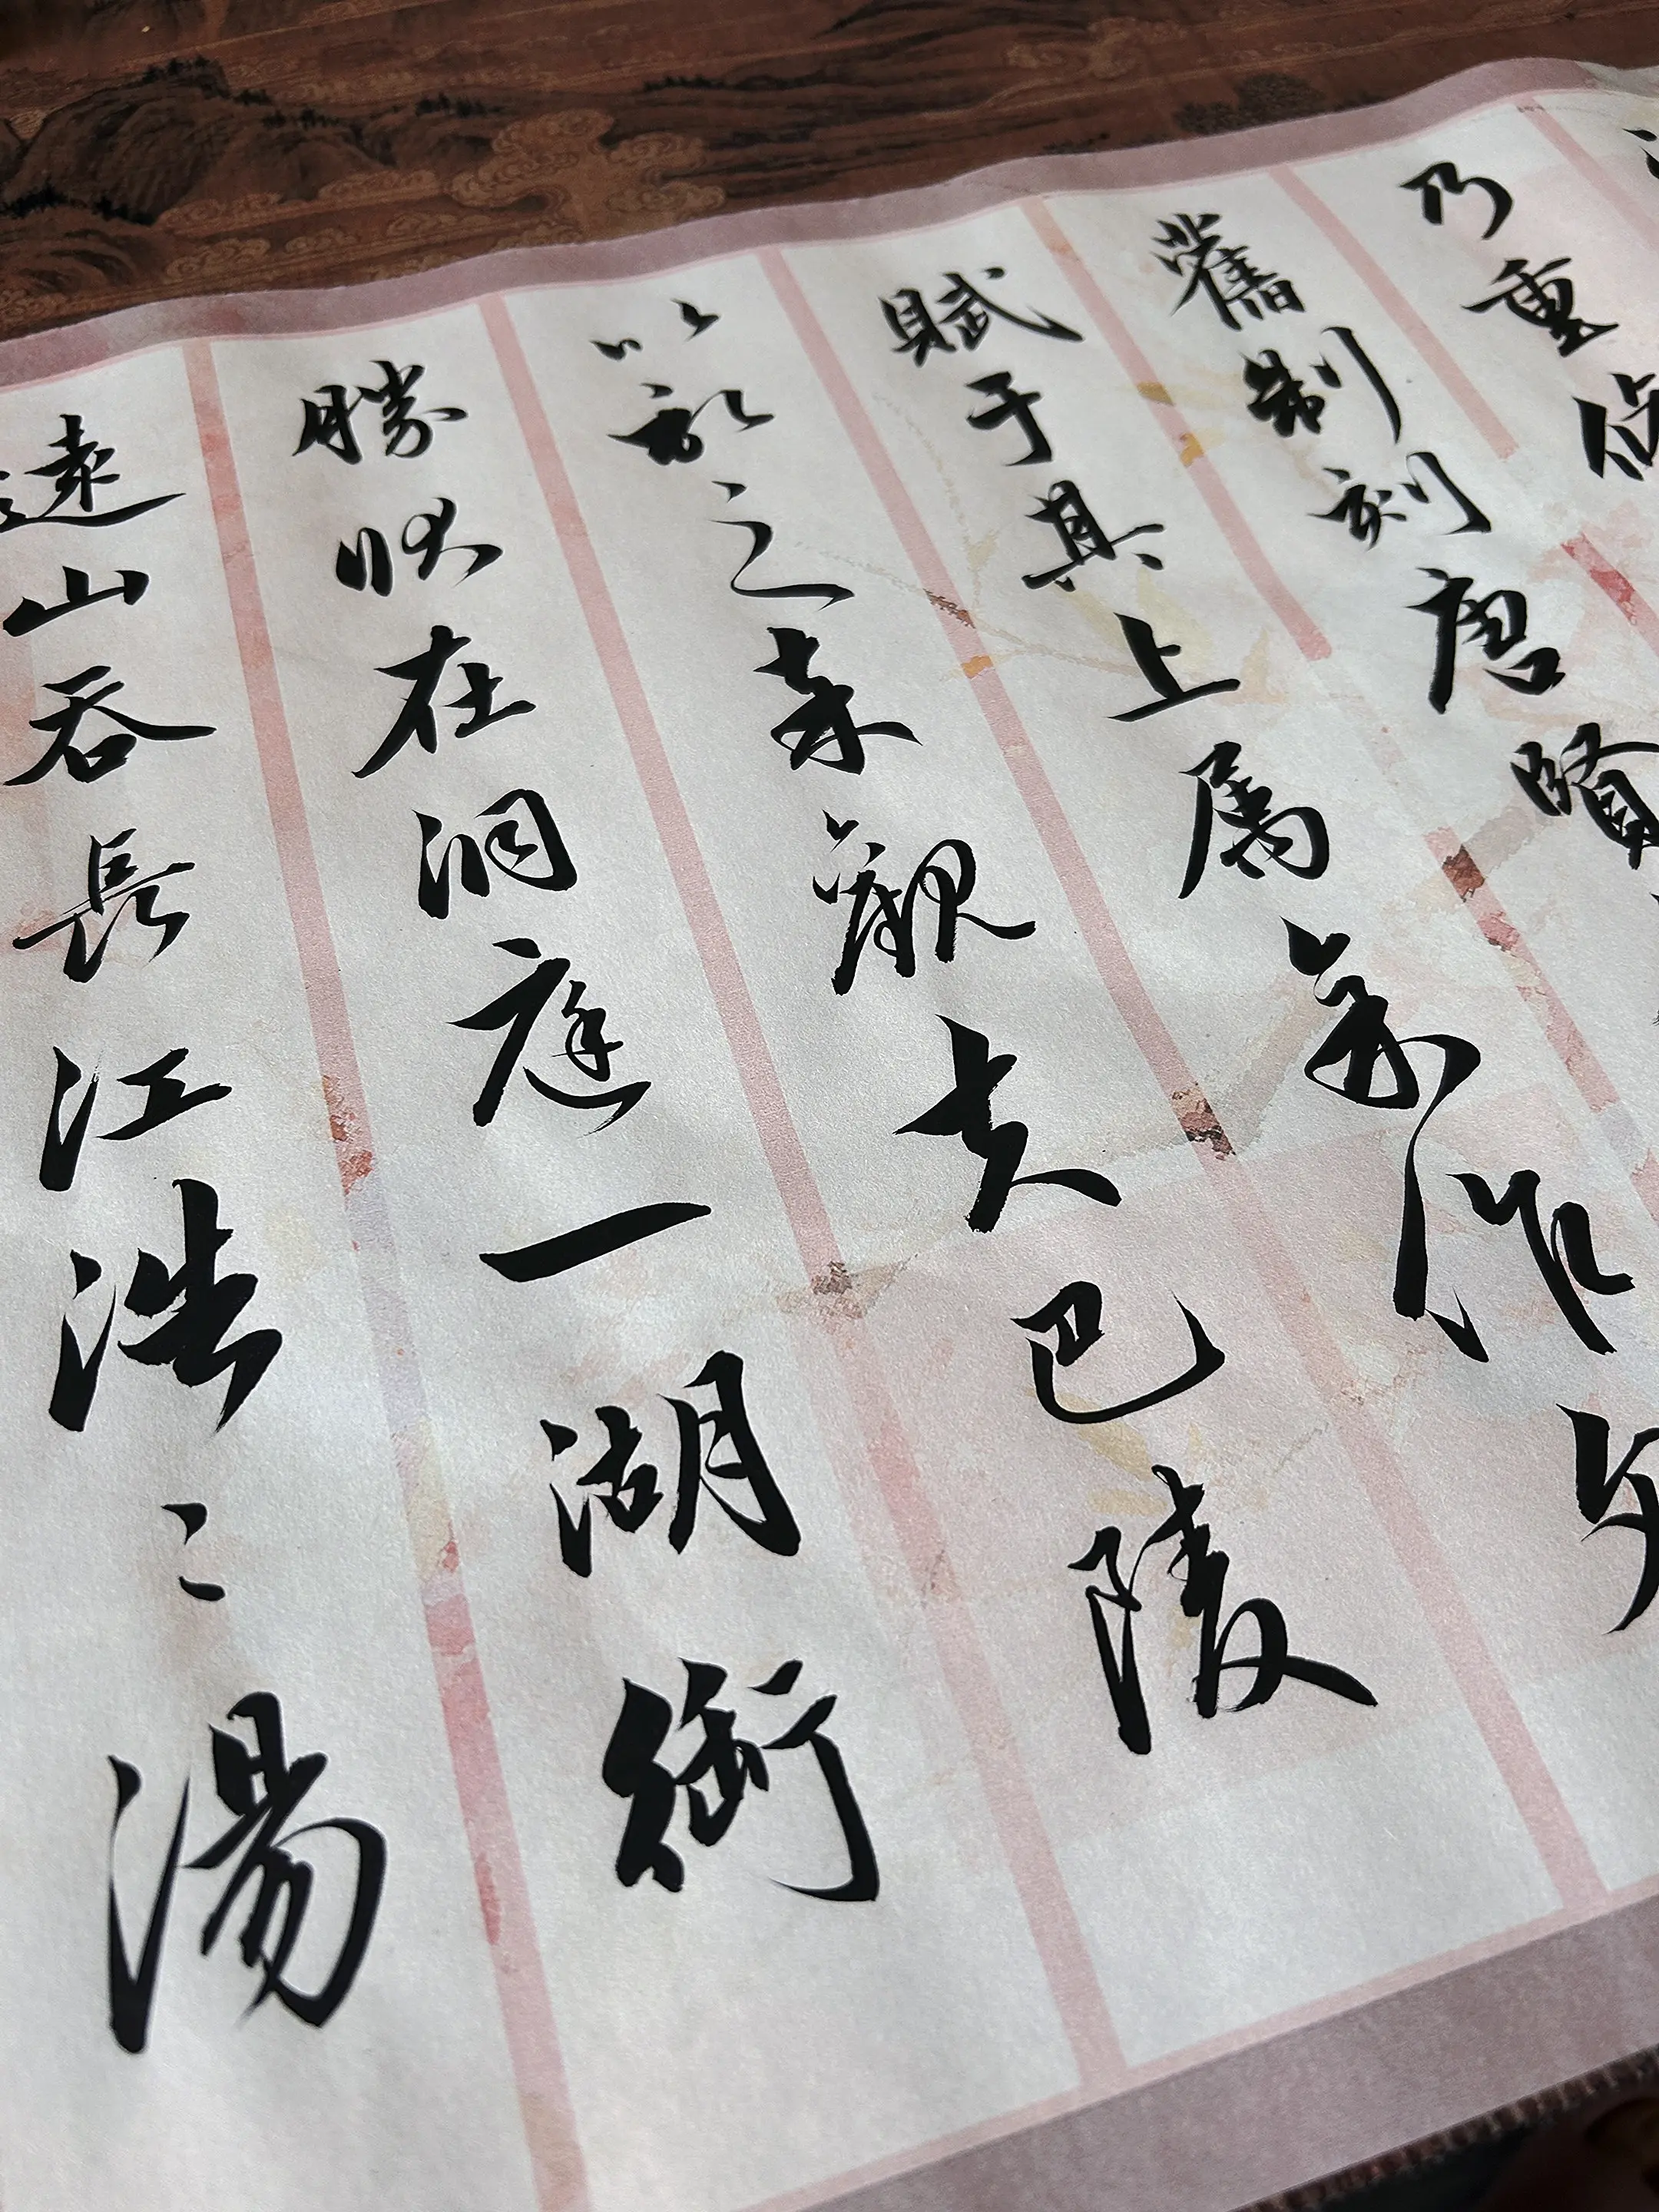 乃重修
舊制刻唐賢
賦于其上属余作文
以記之觀夫巴陵
勝状在洞庭一湖銜
遠山吞長江浩〻湯